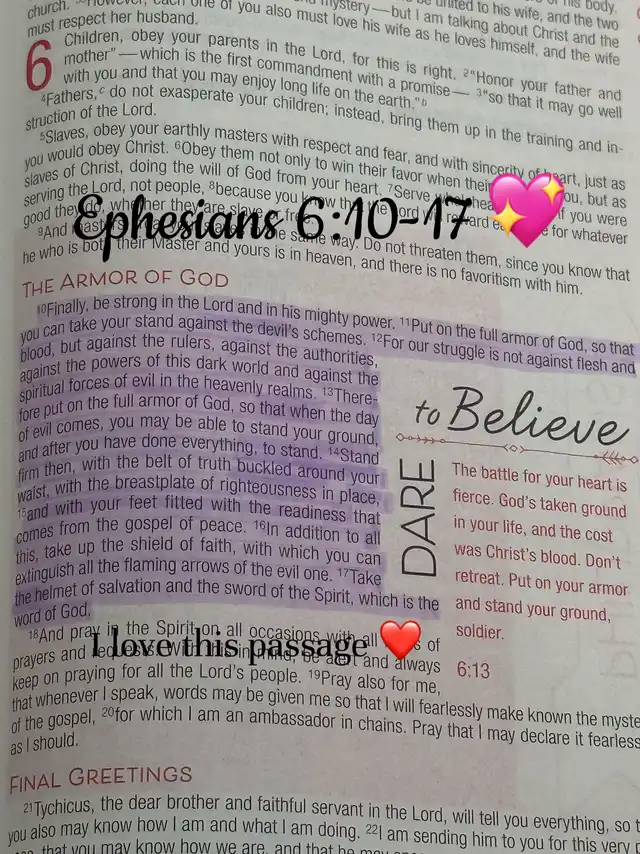 church. However, each one of you also must love his wife as he loves himself, and the wife
must respect her husband.
6 Children, obey your parents in the Lord, for this is right. 2"Honor your father and
mother"—which is the first commandment with a promise— 3"so that it may go well
with you and that you may enjoy long life on the earth."b
4Fathers,c do not exasperate your children; instead, bring them up in the training and in-
struction of the Lord.
5Slaves, obey your earthly masters with respect and fear, and with sincerity of heart, just as
you would obey Christ. 6Obey them not only to win their favor when their you, but as
slaves of Christ, doing the will of God from your heart. 7Serve if you were
serving the Lord, not people, 8because you know that the Lord will reward for whatever
good they do, whether they are
Ephesians 6:10-17 💖
9And masters the same way. Do not threaten them, since you know that
he who is both their Master and yours is in heaven, and there is no favoritism with him.
THE ARMOR OF GOD
10Finally, be strong in the Lord and in his mighty power. 11Put on the full armor of God, so that
you can take your stand against the devil's schemes. 12For our struggle is not against flesh and
blood, but against the rulers, against the authorities,
against the powers of this dark world and against the
spiritual forces of evil in the heavenly realms. 13There-
fore put on the full armor of God, so that when the day
of evil comes, you may be able to stand your ground,
and after you have done everything, to stand. 14Stand
firm then, with the belt of truth buckled around your
waist, with the breastplate of righteousness in place,
15and with your feet fitted with the readiness that
comes from the gospel of peace. 16In addition to all
this, take up the shield of faith, with which you can
extinguish all the flaming arrows of the evil one. 17Take
the helmet of salvation and the sword of the Spirit, which is the
word of God.
DARE
to Believe
The battle for your heart is
fierce. God's taken ground
in your life, and the cost
was Christ's blood. Don't
retreat. Put on your armor
and stand your ground,
soldier.
6:13
18And pray in the Spirit on all occasions with all of
I love this passage ❤️
prayers and and always
keep on praying for all the Lord's people. 19Pray also for me,
that whenever I speak, words may be given me so that I will fearlessly make known the
of the gospel, 20for which I am an ambassador in chains. Pray that I may declare it
as I should.
FINAL GREETINGS
21Tychicus, the dear brother and faithful servant in the Lord, will tell you everything, so
you also may know how I am and what I am doing. 22I am sending him to you for this very
that you may know how we are, and that he may